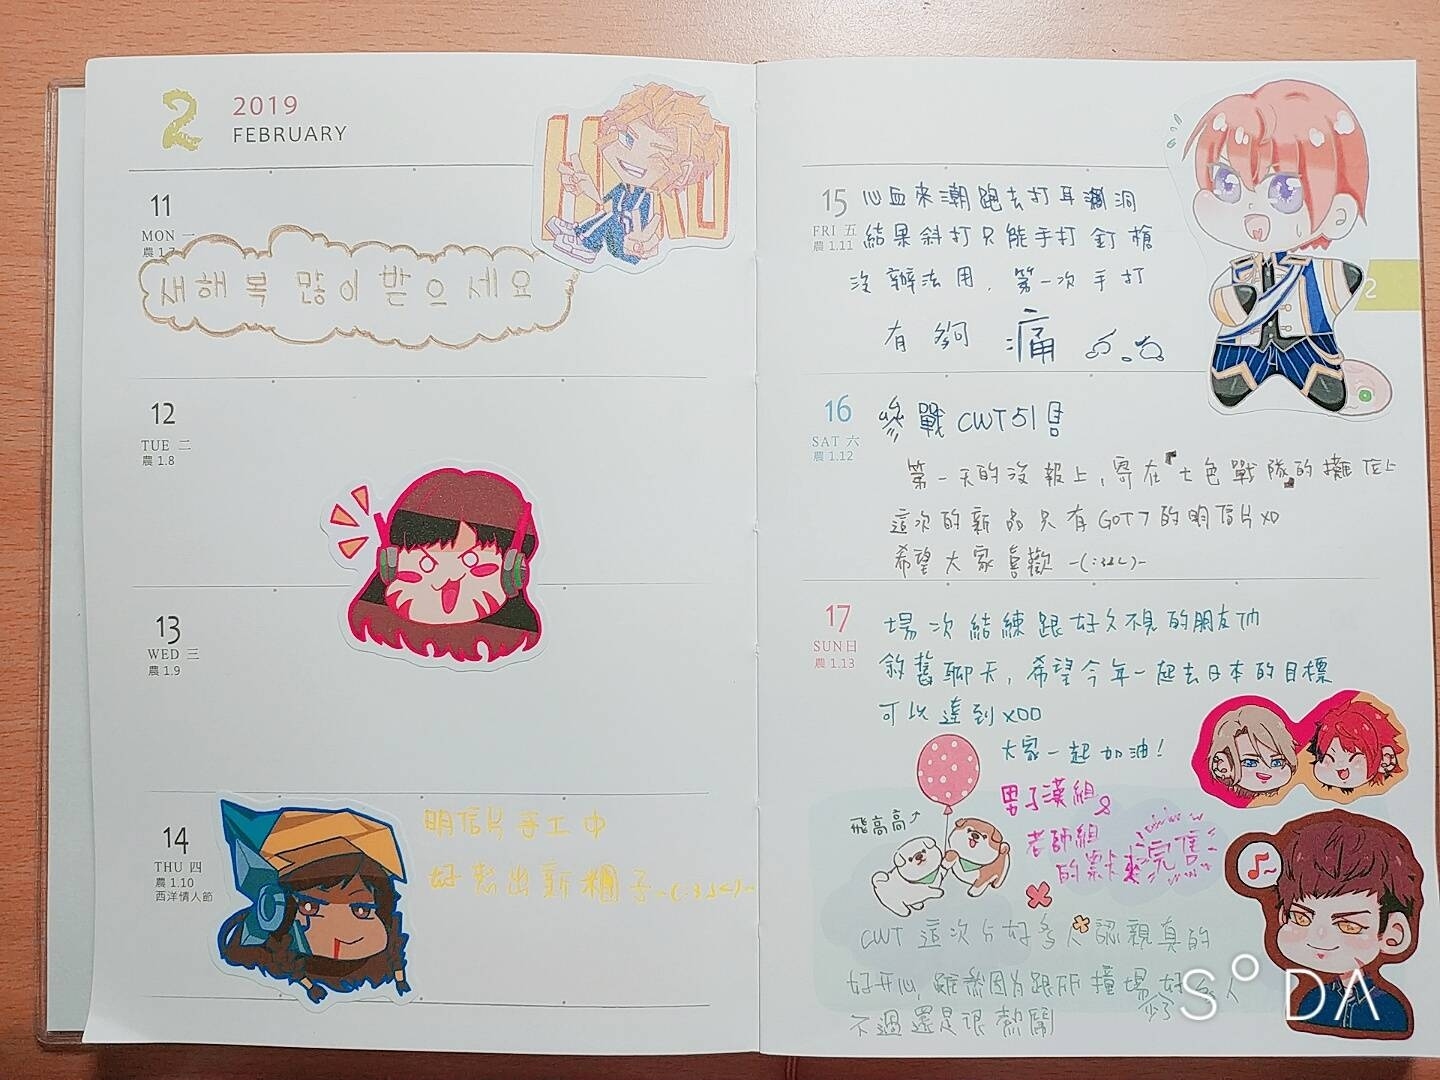 2
2019
FEBRUARY
11
MON 一
農 1.7
새해 복 많이 받으세요
12
TUE 二
農 1.8
13
WED 三
農 1.9
14
THU 四
農 1.10
西洋情人節
明信片手工中
好想出新 子~(:3 」<)~
15
FRI 五
農 1.11
心血來潮跑去打耳洞
結果斜打只能手打釘槍
沒辦法用，第一次手打
有夠 痛
2
16
SAT 六
農 1.12
參戰 CWT51
第一天的沒報上，寄在七色戰隊的攤位上
這次的新品只有GOT7的明信片XD
希望大家喜歡
17
SUN 日
農 1.13
場次結練跟好久不見的朋友功
敘舊聊天，希望今年一起去日本的目標
可以達到XDD
大家一起加油！
飛高高
男子漢組&
老師組
的票卡 完售
CWT 這次分好多人認親真的
好開心，雖然因為跟 撞場 好 人
少了
不過還是很熱鬧
S°DA